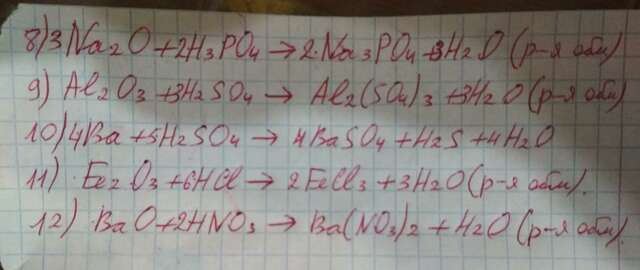 8) 3Na2O + 2H3PO4 → 2·Na3PO4 + 3H2O (р-я обм)
9) Al2O3 + 3H2SO4 → Al2(SO4)3 + 3H2O (р-я обм)
10) 4Ba + 5H2SO4 → 4BaSO4 + H2S + 4H2O
11) Fe2O3 + 6HCl → 2FeCl3 + 3H2O (р-я обм).
12) BaO + 2HNO3 → Ba(NO3)2 + H2O (р-я обм)